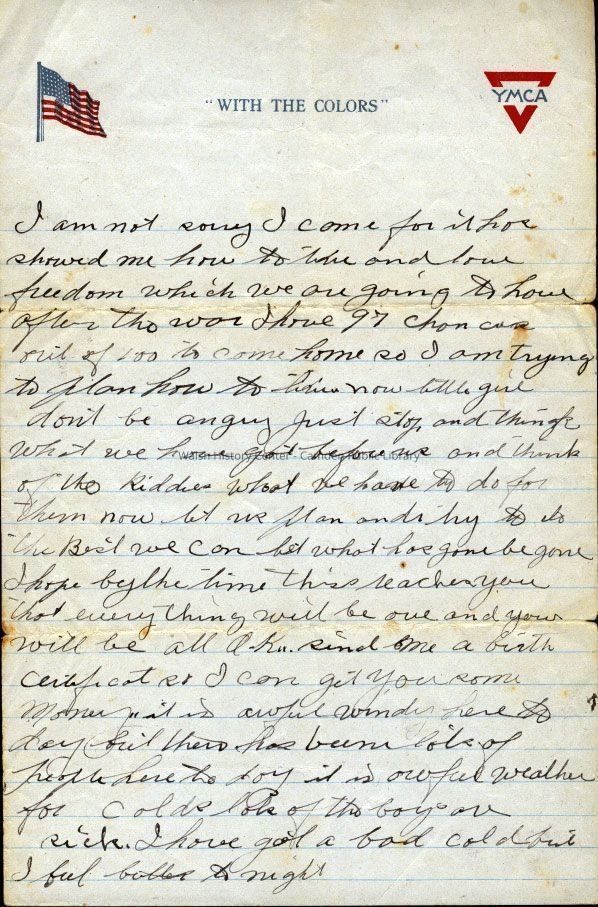 "WITH THE COLORS"
YMCA
I am not sorry I come for it has
showed me how to live and love
freedom which we are going to have
after tho war I have 97 chances
out of 100 to come home so I am trying
to plan how to live now little girl
don't be angry just stop and think
what we have got before us and think
of tho Kiddies what we have to do for
them now let us plan and try to do
the Best we can let what has gone be gone
I hope by the time this reaches you
that everything will be over and you
will be all O.K. send me a birth
certificat so I can get you some
money it is awful windy here to
day but there has been lots of
people here to day it is awful weather
for colds lots of tho boys are
sick. I have got a bad cold but
I feel better to night
Walsh History Center - Camden Public Library